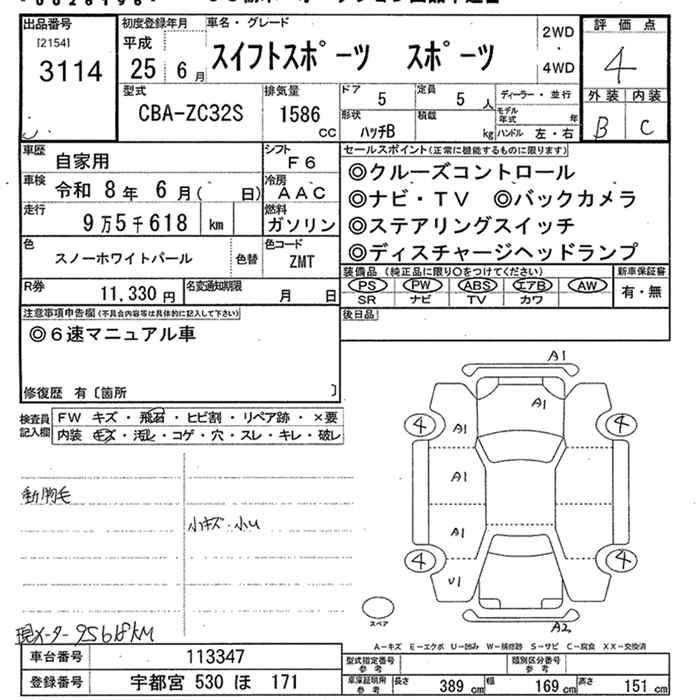 出品番号
[2154]
3114
初度登録年月
平成
25 6 月
車名・グレード
スイフトスポーツ スポーツ
2WD
4WD
評価点
4
外装 内装
B C
型式
CBA-ZC32S
排気量
1586
cc
ドア
5
定員
5 人
形状
ハッチB
積載
kg
ディーラー・並行
モデル年式
年
ハンドル 左・右
車歴
自家用
シフト
F6
車検
令和 8年 6月( 日)
冷房
AAC
走行
9万5千618 km
燃料
ガソリン
色
スノーホワイトパール
色替
色コード
ZMT
R券
11,330 円
名変通知期限
月 日
セールスポイント(正常に機能するものに限ります)
◎クルーズコントロール
◎ナビ・TV ◎バックカメラ
◎ステアリングスイッチ
◎ディスチャージヘッドランプ
装備品(純正品に限り○をつけてください)
新車保証書
PS PW ABS エアB AW
SR ナビ TV カワ
有・無
注意事項申告欄(不具合内容等は具体的に記入して下さい)
◎6速マニュアル車
後日品
修復歴 有〔箇所 〕
検査員記入欄
FW キズ・飛石・ヒビ割・リペア跡・×要
内装 キズ・汚れ・コゲ・穴・スレ・キレ・破レ
動物毛
小キズ・小U
現メーター95618KM
A1
A1
4 4
A1
A1
A1
4 4
U1
A2
スペア
A-キズ E-エクボ U-凹み W-補修跡 S-サビ C-腐食 XX-交換済
車台番号
113347
登録番号
宇都宮 530 ほ 171
型式指定番号
参考
類別区分番号
参考
車庫証明用
参考
長さ
389 cm
幅
169 cm
高さ
151 cm